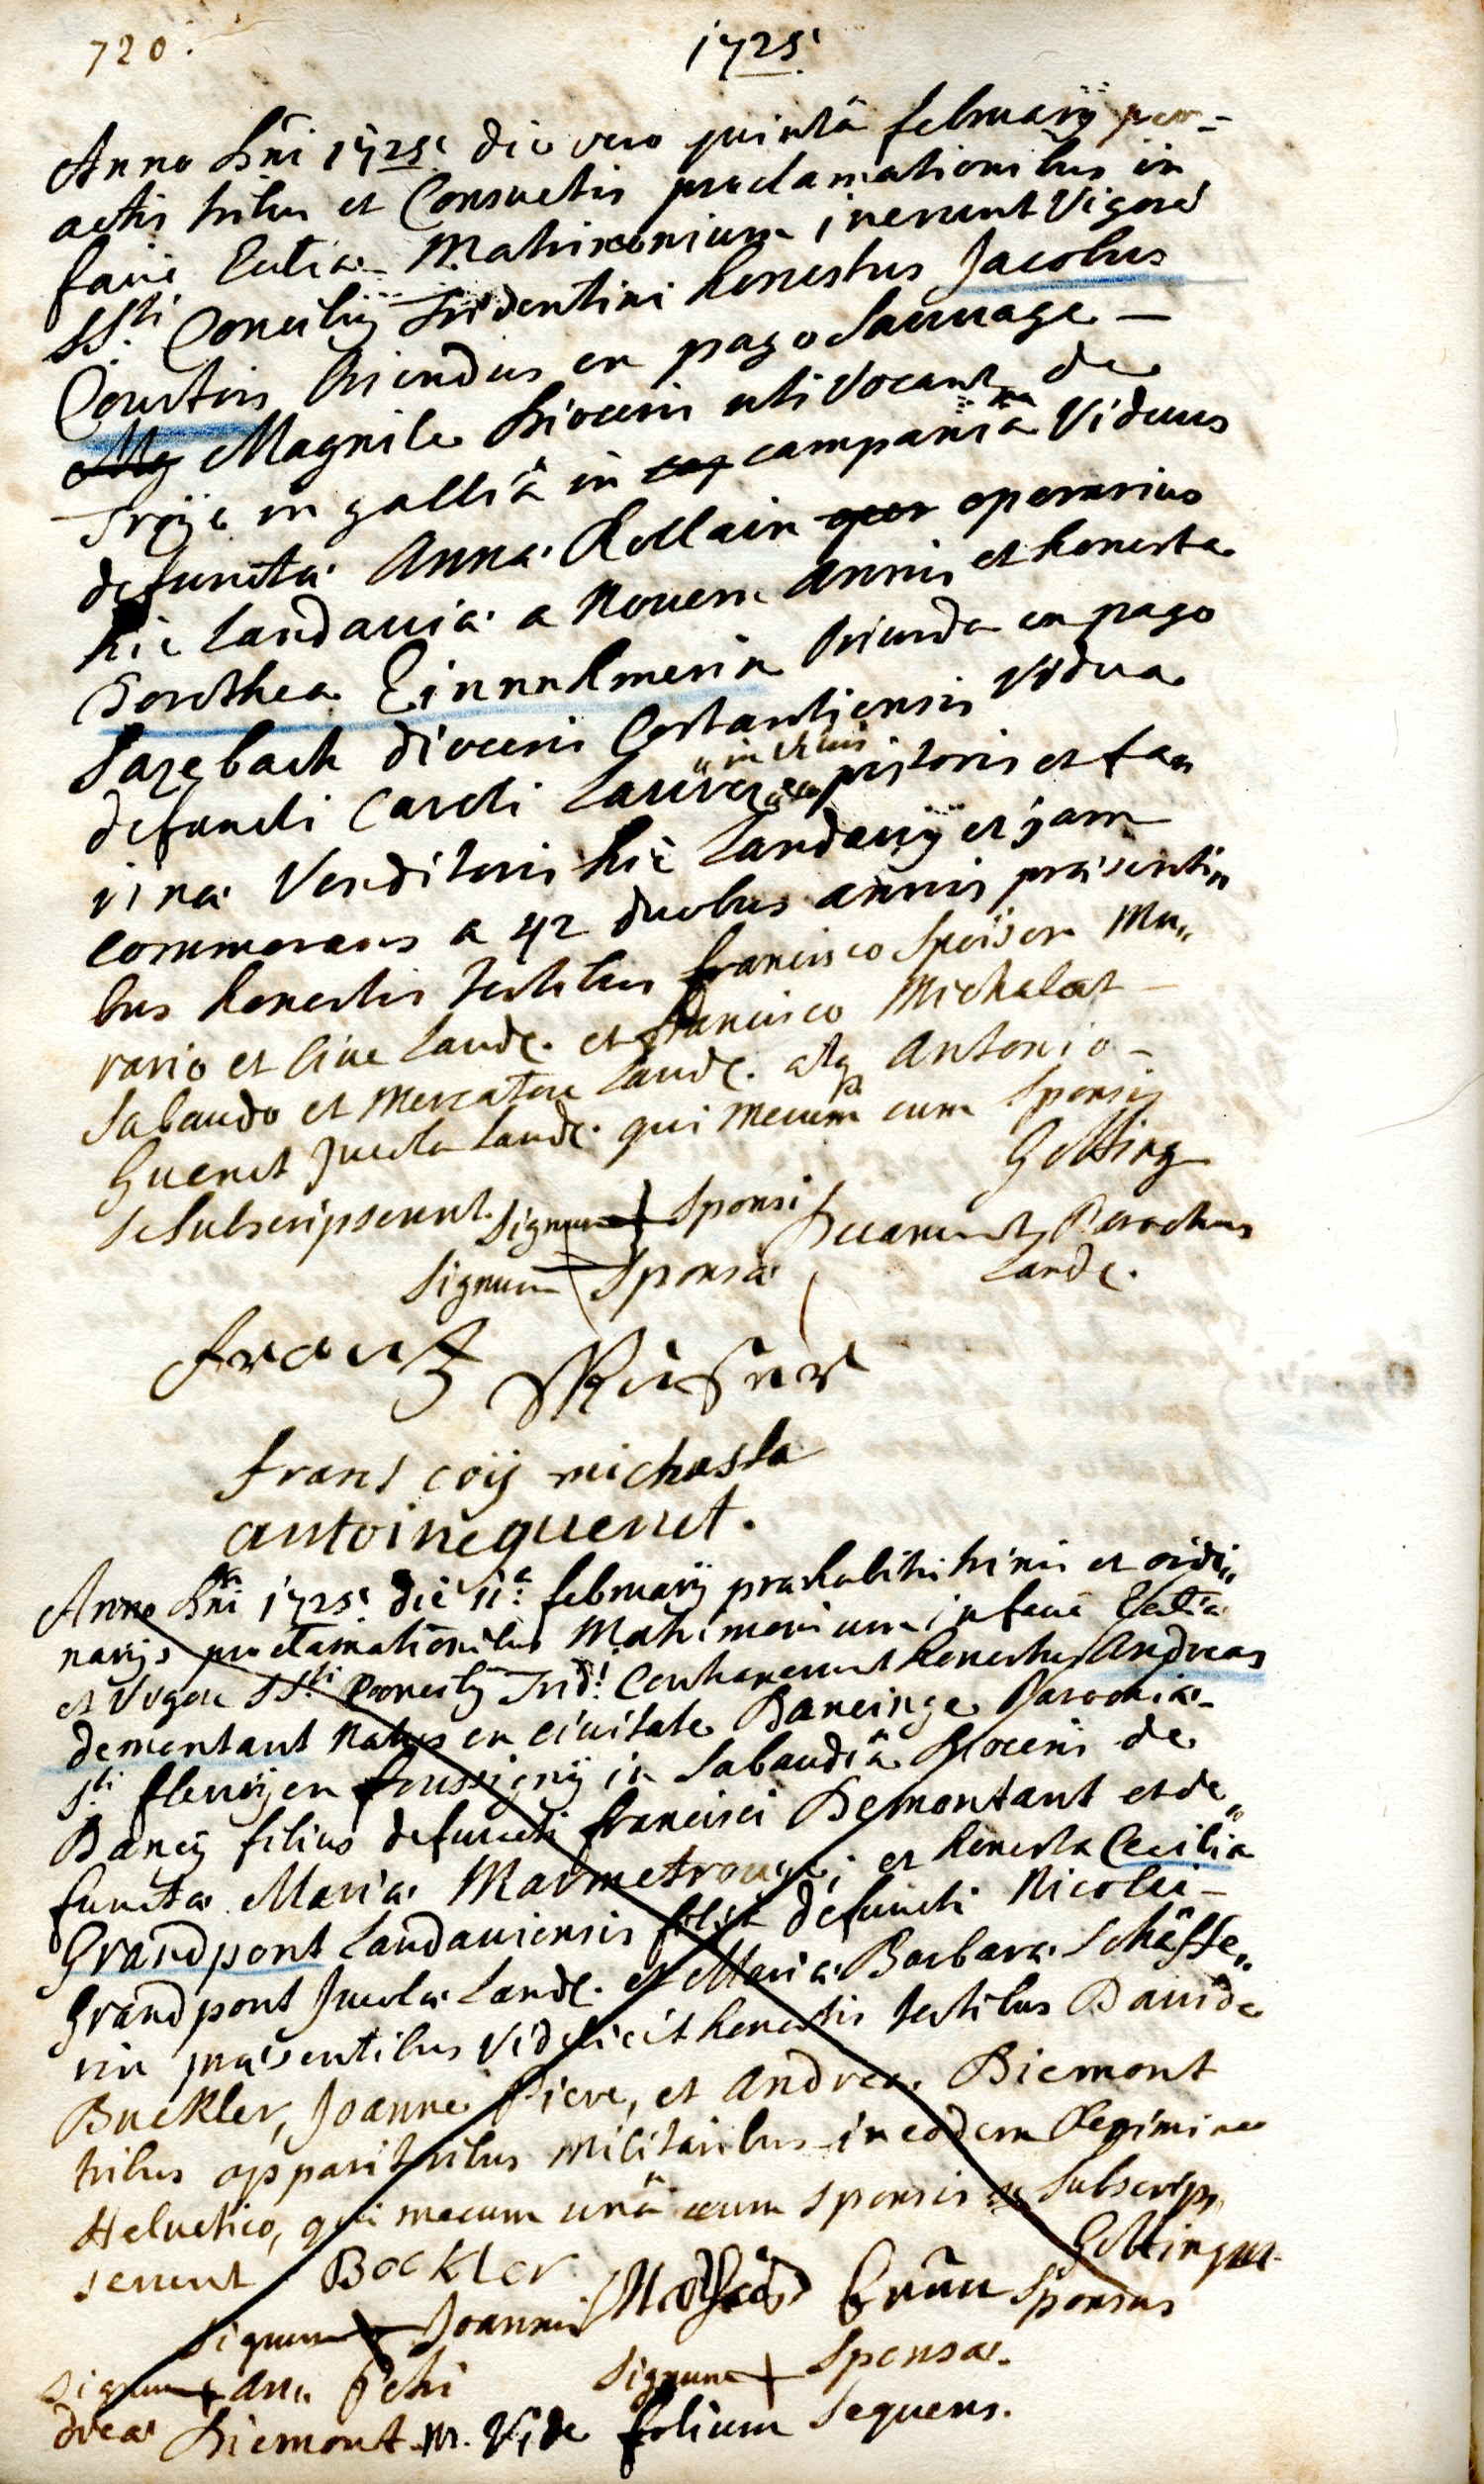 720.
1725.
Anno Dni 1725. die vero quintâ februarÿ per-
actis tribus et Consuetis proclamationibus in
facie Eclia Matrimonium inerunt Vigore
SSti Concilÿ Tridentini honestus Jacobus
Courtois oriundus en pago Sauuage -
Magnile Dioecesis uti vocant de
Troÿe in galliâ in campaniâ Viduus
defuncta Anna Rollain operarius
hic Landauia a Nouem annis et honesta
Dorothea Einnehmerin oriunda en pago
Sazebach dioecesis Costantiensis Vidua
defuncti Caroli pistoris et fa
rina Venditoris hic Landauÿ et jam
commorans a 42 duobus annis præsenti
bus honestis testibus francisco Speiser Mu„
rario et Ciue Landc. et francisco Michalat
Sabaudo et Mercatore Landc. atq Antonio -
Guenet Jncola Landc. qui mecum cum Sponsis
se Subscripserunt. Signum + Sponsi
Gotting
Parochus
Signum + Sponsa
Landc.
frantz
frans coÿ michasla
antoine guenet.
Anno Dni 1725. die 11a februarÿ præhabitis trinis et ordi„
narÿs proclamationibus Matrimonium in facie Eclia
et Vigore SSti Concilÿ Trid! Contraxerunt honestus Andreas
demontant natus en ciuitate Baneinge Parochia
Sti fleurÿ en foussignÿ in Sabaudiâ Dioecesis de
Banej filius defuncti francisci Demontant et de„
functa Maria Marmetrouge; et honesta Cecilia
Grandpont Landauiensis defuncti Nicolai -
Grandpont Jncola Landc. et Maria Barbara Schäffe„
rin præsentibus Videlicet honestis testibus Dauide
Buckler, Joanne Piere, et Andrea Biemont
tribus apparitoribus Militaribus in eodem Regimine
Heluetico, qui mecum unâ cum sponsis se Subscrip„
serunt Bockler
Gottingus
Signum + Joannis
brûn
Sponsus
Signum + an„ Petri
Signum + Sponsa.
drea Biemont. Vide folium Sequens.